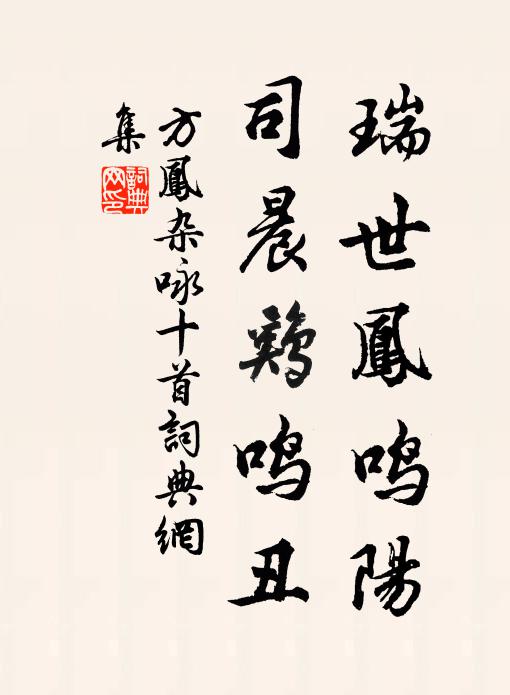 瑞世鳳鸣陽
司晨鷄鸣丑
方鳳杂咏十首詞典網
集
詞典
网印